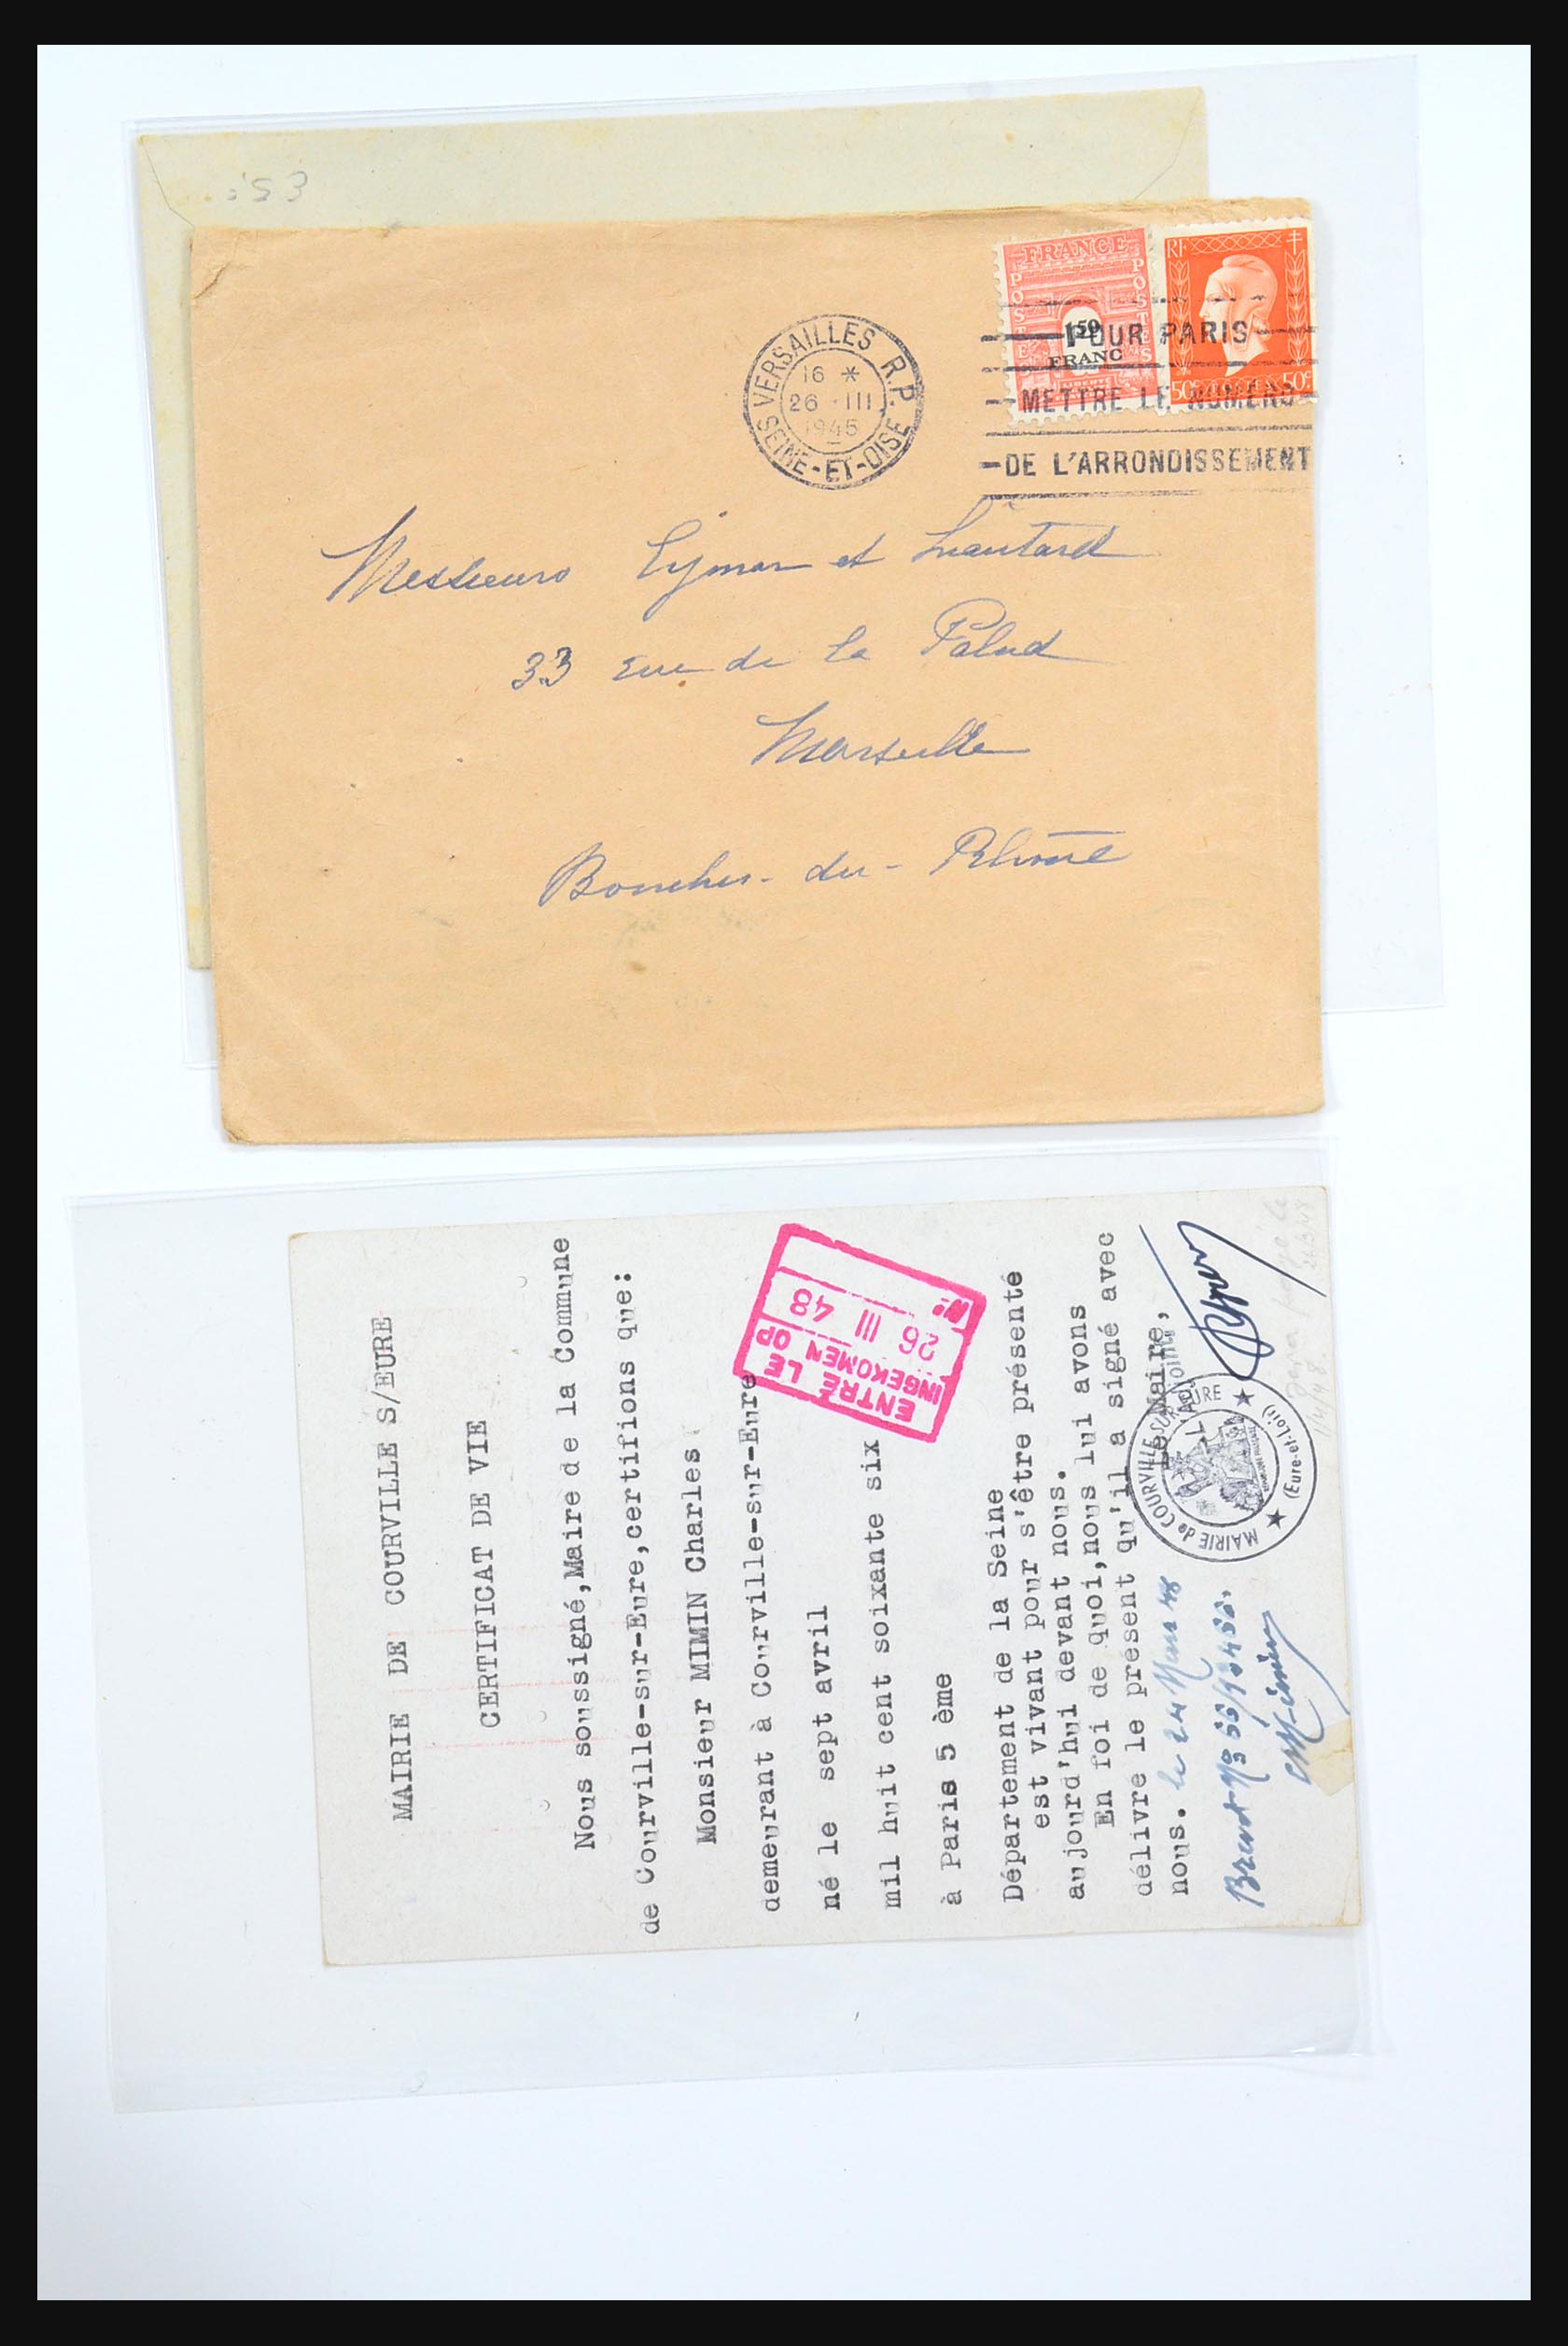 :53
FRANCE
POSTES
POSTES
1F50
FRANC
RF
50c
50c
VERSAILLES R.P.
16 *
26 · III
1945
SEINE-ET-OISE
POUR PARIS
METTRE LE NUMERO
DE L'ARRONDISSEMENT
Messieurs Eymar et Liautard
33 rue de la Palud
Marseille
Bouches-du-Rhône
MAIRIE DE COURVILLE S/EURE
CERTIFICAT DE VIE
Nous soussigné, Maire de la Commune
de Courville-sur-Eure, certifions que:
Monsieur MIMIN Charles
demeurant à Courville-sur-Eure
né le sept avril
mil huit cent soixante six
à Paris 5 ème
Département de la Seine
est vivant pour s'être présenté
aujourd'hui devant nous.
En foi de quoi, nous lui avons
délivre le présent qu'il a signé avec
nous. le 24 Mars 48
Le Maire,
Brevet No 66/13400.
CMimin
ENTRÉ LE
INGEKOMEN OP
26 III 48
No
MAIRIE de COURVILLE SUR EURE
(Eure-et-Loir)